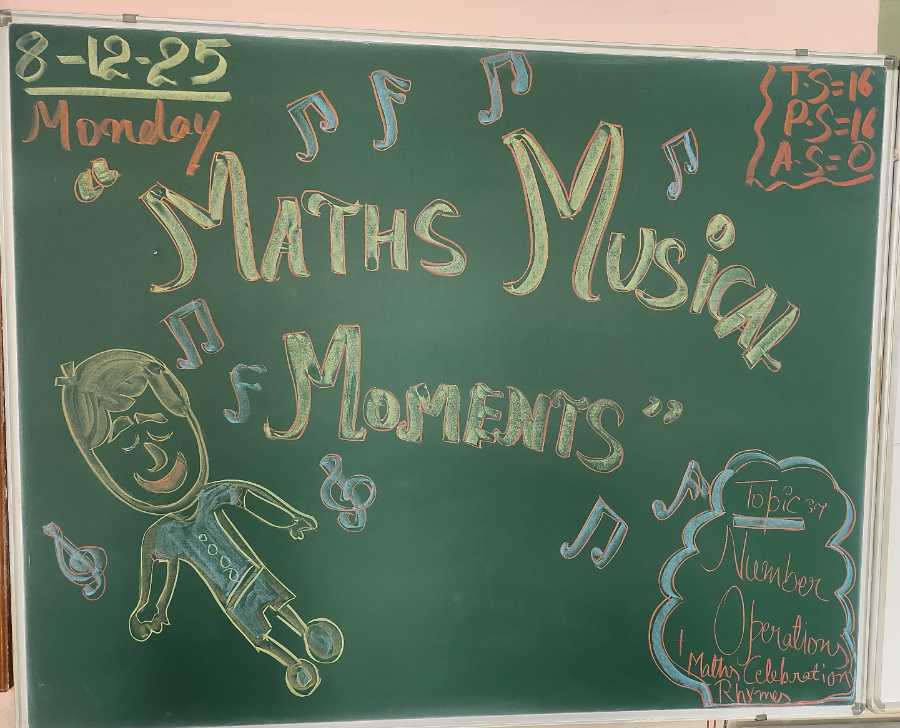 8-12-25
Monday
T.S=16
P.S=16
A.S=0
"Maths Musical
Moments"
Topic :-
Number
Operations
+
Maths Celebration
Rhymes